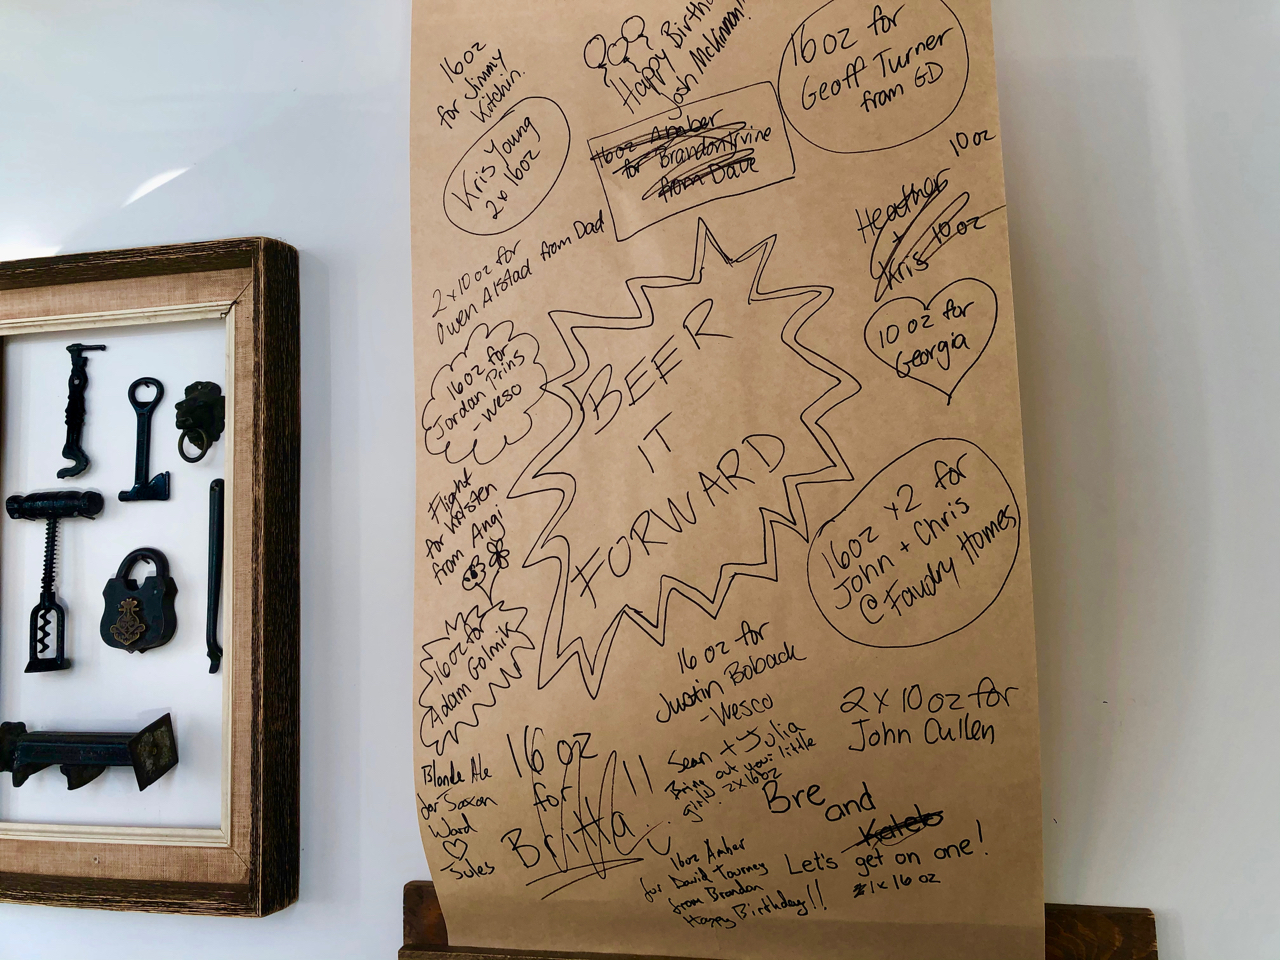 16oz
for Jimmy
Kitchin.
Happy Birthd
Josh McKinnon!!
16oz for
Geoff Turner
from GD
Kris Young
2x 16oz
16oz Amber
for Brandon Irvine
from Dave
10oz
Heather
+ 10oz
Kris
2x10oz for
Owen Alstad from Dad
10 oz for
Georgia
16oz for
Jordan Prins
- Weso
BEER
IT
FORWARD
Flight
for Kristen
from Angi
16oz x2 for
John + Chris
@ Fawdry Homes
16oz for
Adam Golmik
16 oz for
Justin Boback
- Wesco
2 x 10 oz for
John Cullen
Blonde Ale
for Saxon
Ward
♡
Jules
16 oz
for
Britta
!!
Sean + Julia
Bring out your little
girl! 2x16oz
Bre
and
Kaleb
Let's get on one!
1x 16 oz
16oz Amber
for David Tourney
from Brandon
Happy Birthday!!